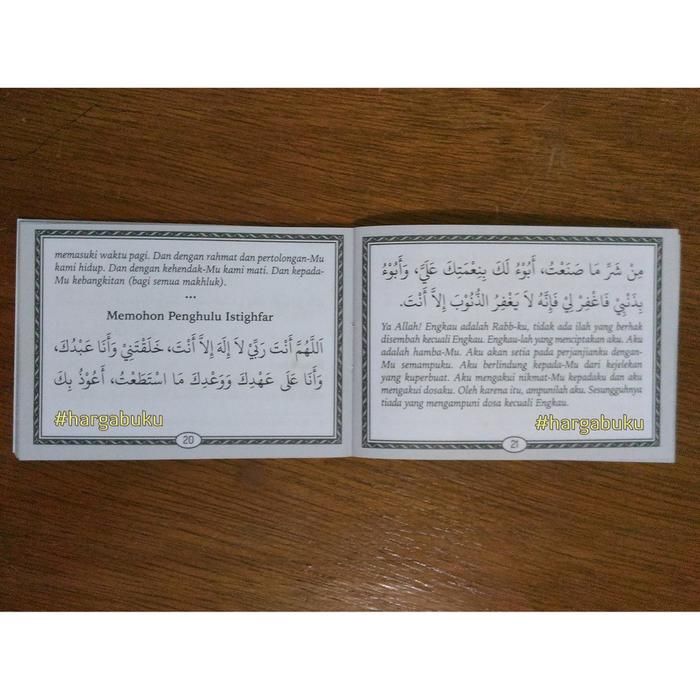 memasuki waktu pagi. Dan dengan rahmat dan pertolongan-Mu
kami hidup. Dan dengan kehendak-Mu kami mati. Dan kepada-
Mu kebangkitan (bagi semua makhluk).
...
Memohon Penghulu Istighfar
اَللَّهُمَّ أَنْتَ رَبِّيْ لاَ إِلَهَ إِلاَّ أَنْتَ، خَلَقْتَنِيْ وَأَنَا عَبْدُكَ،
وَأَنَا عَلَى عَهْدِكَ وَوَعْدِكَ مَا اسْتَطَعْتُ، أَعُوْذُ بِكَ
#hargabuku
20
مِنْ شَرِّ مَا صَنَعْتُ، أَبُوْءُ لَكَ بِنِعْمَتِكَ عَلَيَّ، وَأَبُوْءُ
بِذَنْبِيْ فَاغْفِرْ لِيْ فَإِنَّهُ لاَ يَغْفِرُ الذُّنُوْبَ إِلاَّ أَنْتَ.
Ya Allah! Engkau adalah Rabb-ku, tidak ada ilah yang berhak
disembah kecuali Engkau. Engkau-lah yang menciptakan aku. Aku
adalah hamba-Mu. Aku akan setia pada perjanjianku dengan-
Mu semampuku. Aku berlindung kepada-Mu dari kejelekan
yang kuperbuat. Aku mengakui nikmat-Mu kepadaku dan aku
mengakui dosaku. Oleh karena itu, ampunilah aku. Sesungguhnya
tiada yang mengampuni dosa kecuali Engkau.
#hargabuku
21